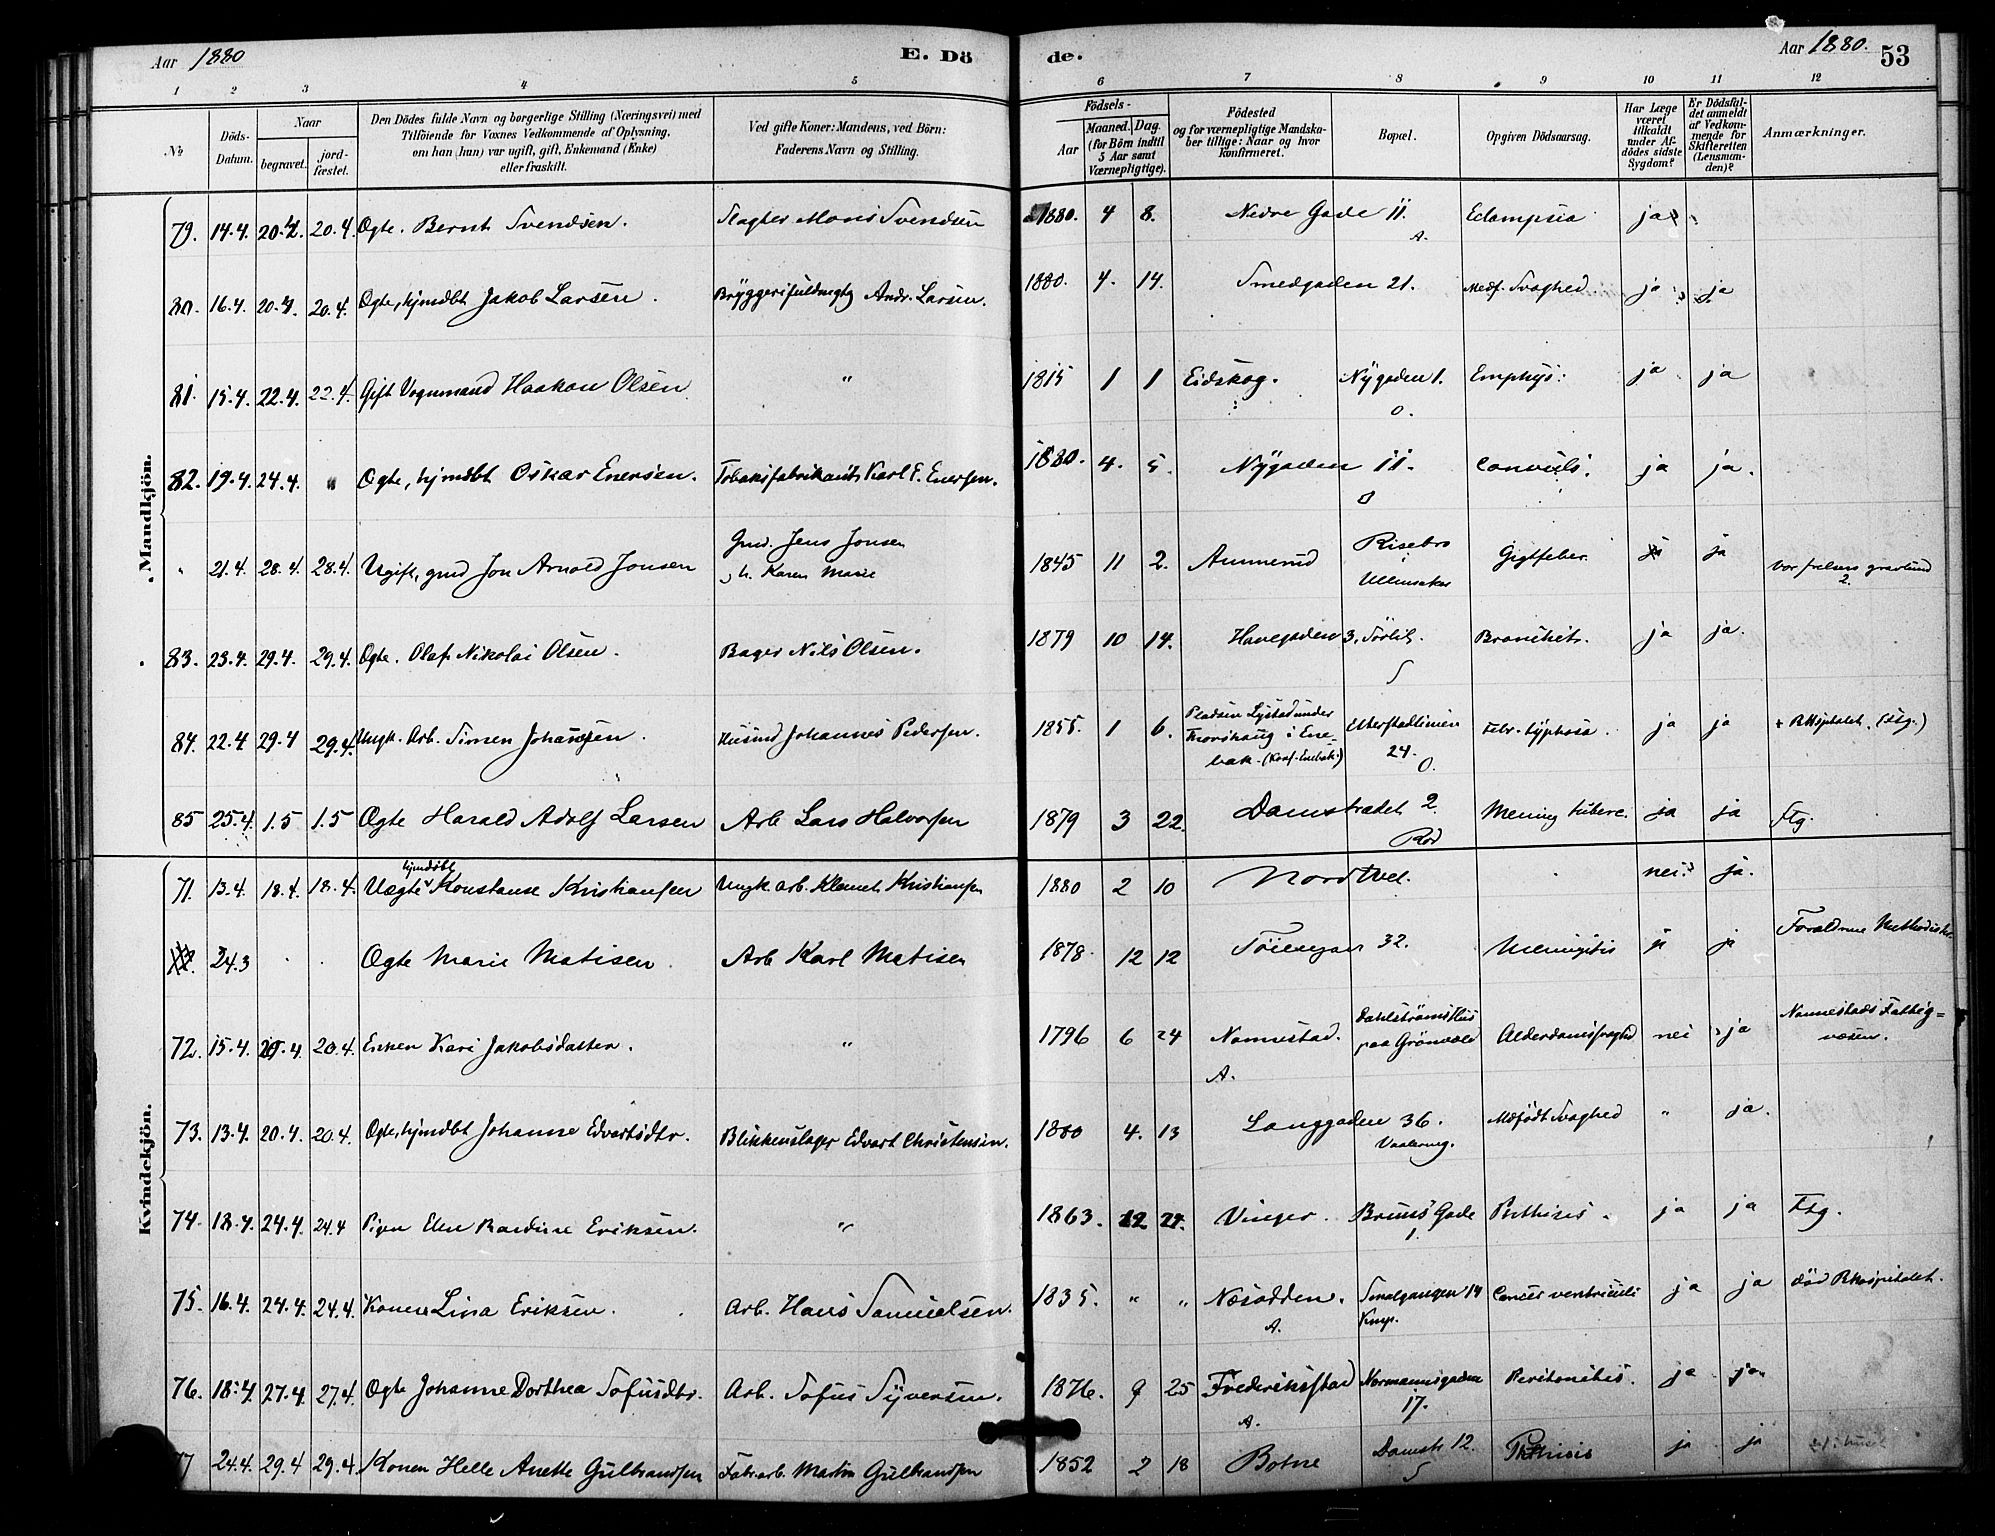 Aar 1880 E. Dö de. Aar 1880. 53
1 2 3 4 5 6 7 8 9 10 11 12
No
Döds-Datum.
Naar
begravet.
jord-fæstet.
Den Dödes fulde Navn og borgerlige Stilling (Næringsvei) med
Tilföiende for Voxnes Vedkommende af Oplysning,
om han (hun) var ugift, gift, Enkemand (Enke)
eller fraskilt.
Ved gifte Koner: Mandens, ved Börn:
Faderens Navn og Stilling.
Födsels-
Aar
Maaned. Dag.
(for Börn indtil
5 Aar samt
Værnepligtige).
Födested
og for værnepligtige Mandska-
ber tillige: Naar og hvor
konfirmeret.
Bopæl.
Opgiven Dödsaarsag.
Har Læge
været
tilkaldt
under Af-
dödes sidste
Sygdom?
Er Dödsfal-
det anmeldt
af Vedkom-
mende for
Skifteretten
(Lensman-
den)?
Anmærkninger.
Mandkjön.
79. 14.4. 20.4. 20.4. Ægte. Bernt Svendsen. Slagter Mons Svendsen 1880. 4 8. Nedre Gade 11. A. Eclampsia ja
80. 16.4. 20.4. 20.4. Ægte, hjmdbt Jakob Larsen. Bryggerifuldmgtg Andr. Larsen. 1880. 4. 14. Smedgaden 21. Medf. Svaghed ja ja
81. 15.4. 22.4. 22.4. Gift Vognmand Haakon Olsen " 1815 1 1 Eidskog. Nygaden 1. O. Emphys: ja ja
82. 19.4. 24.4. " Ægte, hjmdbt Oskar Enersen. Tobaksfabrikant Karl F. Enersen. 1880. 4. 5. Nygaden 11. Convuls. ja ja.
21.4. 28.4. 28.4. Ugift, gmd Jon Arnold Jonsen Gmd. Jens Jonsen
h. Karen Marie 1845 11 2. Ammerud Risebro i Ullensaker Gigtfeber. ja ja Vor frelsers gravlund 2.
83. 23.4. 29.4. 29.4. Ægte. Olaf Nikolai Olsen. Bager Nils Olsen. 1879 10 14. Havegaden 3. Bronchit. ja ja.
84. 22.4 29.4 29.4. Ungk. Arb. Simen Johansen. Husmd Johannes Pedersen. 1855. 1 6. Pladsen Lystad under
bak. (Konf. Enebak.) 24. O. Febr. typhosa. ja ja + Rhspitalet. (Ftg.)
85 25.4 1.5 1.5 Ægte Harald Adolf Larsen Arb Lars Halvorsen 1879 3 22. Damstrædet 2. Mening tuberc. ja ja Ftg.
Kvindekjön.
71. 13.4. 18.4. 18.4. Uægte hjmdöbt Konstanse Kristiansen Ungk arb. Klemet Kristiansen 1880 2 10 Nordtvet. nei ja.
24.3 Ægte Marie Matisen. Arb Karl Matisen 1878. 12 12 Töiengaden 32. Meningitis ja ja Forældrene Methodister
72. 15.4. 20.4. 20.4. Enken Kari Jakobsdatter. " 1796 6 24 Nannestad. A. Dahlströms Hus
paa Grönvold Alderdomssvaghed nei ja Nannestads Fattig=
væsen.
73. 13.4. 20.4. 20.4. Ægte, hjmdbt Johanne Edvartsdtr. Blikkenslager Edvart Christensen. 1880 4. 13 Langgaden 36. Vaalereng. Medfödt Svaghed " ja.
74. 18.4. 24.4. 24.4 Pigen Elen Bardine Eriksen. " 1863. 12 24. Vinger. Bruns Gade 1. Phthisis. ja ja Ftg.
75. 16.4. 24.4. 24.4. Konen Lina Eriksen. Arb. Hans Samuelsen. 1835. " " Næsodden. A. Smalgangen 14 Kmp. Cancer ventriculi ja ja död Rhospitalet.
76. 18.4. 27.4. 27.4. Ægte Johanne Dorthea Sofusdtr. Arb. Sofus Syversen. 1876. 9 25 Frederiksstad A. Normannsgaden 17. Peritonitis. ja ja
24.4. 29.4 29.4. Konen Helle Anette Gulbrandsen Fabr.arb. Martin Gulbrandsen 1852 2 18 Botne Damstr 12. Phthisis ja ja